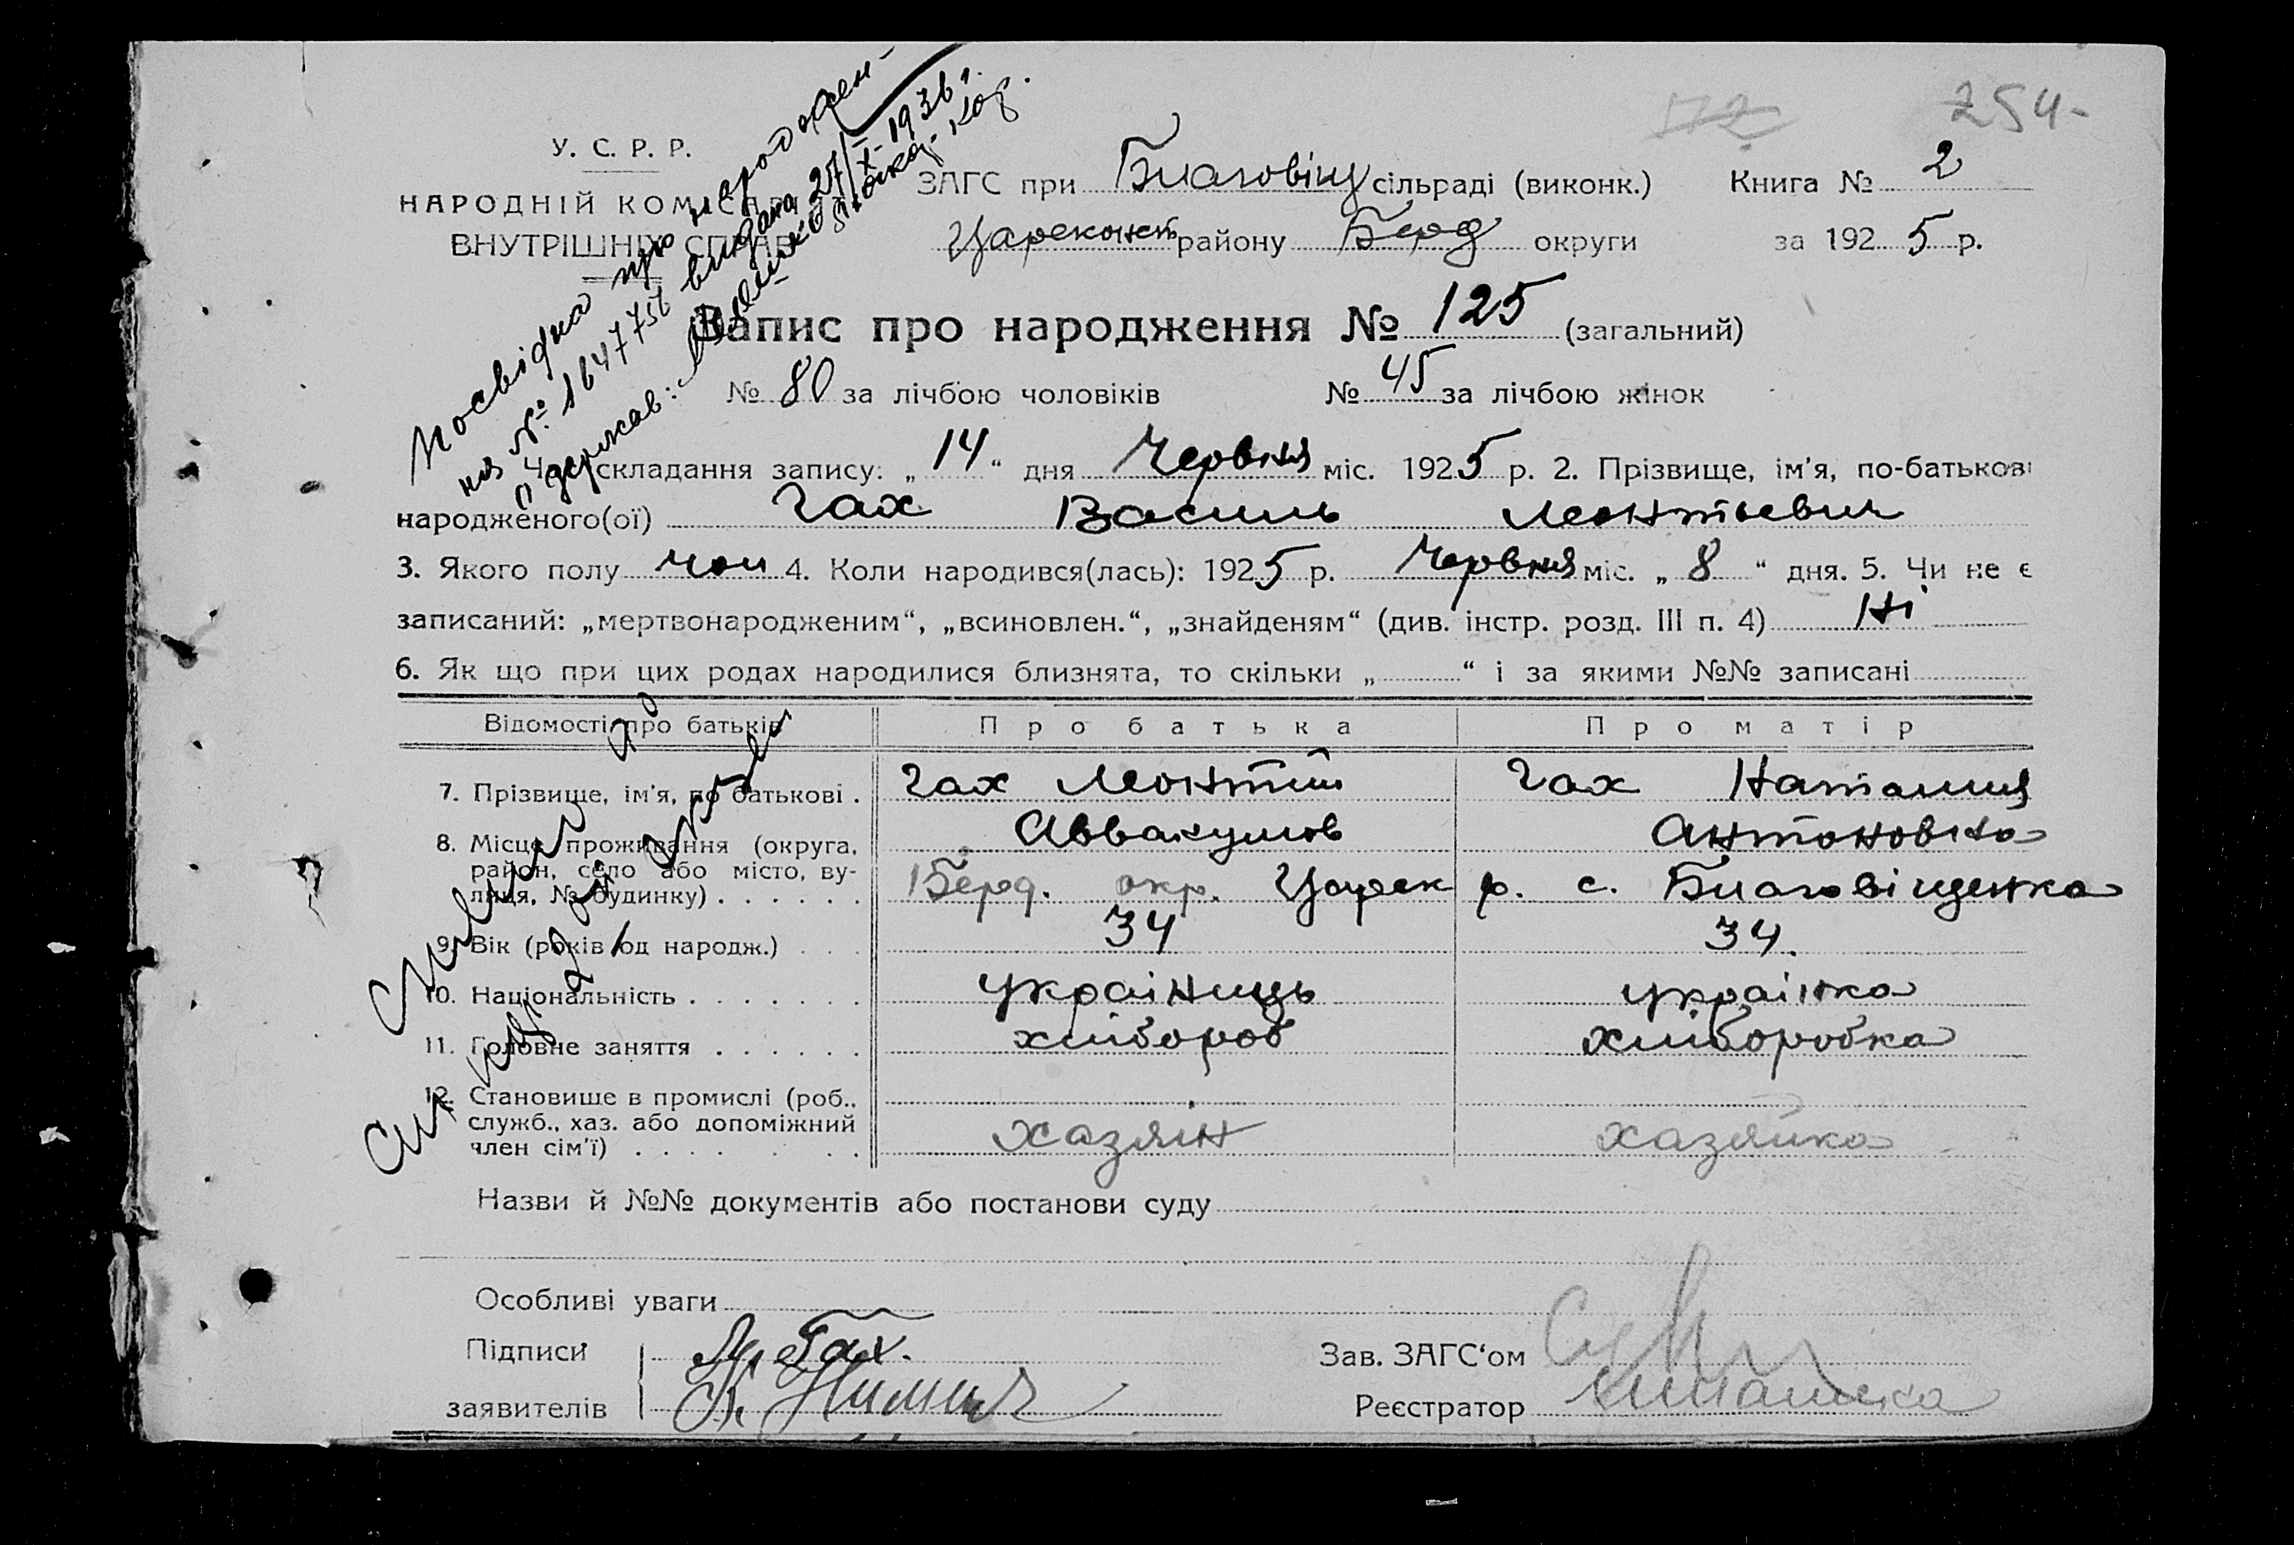 254-
У. С. Р. Р.
НАРОДНІЙ КОМІСАР.
ВНУТРІШНІХ СПРАВ
ЗАГС при Благовіщ сільраді (виконк.) Книга № 2
Царекокст району Берд округи за 1925 р.
Посвідка про народжен-
ня № 1647756 видана 27/X-1936 р.
Одержав:
Запис про народження № 125 (загальний)
№ 80 за лічбою чоловіків № 45 за лічбою жінок
складання запису: „14“ дня Червня міс. 1925 р. 2. Прізвище, ім'я, по-батькові
народженого(ої) Гах Василь Леонтьевич
3. Якого полу чол 4. Коли народився(лась): 1925 р. Червня міс. „8“ дня. 5. Чи не є
записаний: „мертвонародженим“, „всиновлен.“, „знайденям“ (див. інстр. розд. III п. 4) Ні
6. Як що при цих родах народилися близнята, то скільки „ “ і за якими №№ записані
Відомості про батьків Про батька Про матір
7. Прізвище, ім'я, по батькові . Гах Леонтий Гах Наталия
Аввакумов Антоновна
8. Місце проживання (округа, район, село або місто, вулиця, № будинку) . . . . . . Берд. окр. Царек р. с. Благовіщенка
9. Вік (років од народж.) . . . 34 34.
10. Національність . . . . . . . українець українка
11. Головне заняття . . . . . . хлібороб хліборобка
12. Становище в промислі (роб., служб., хаз. або допоміжний член сім'ї) . . . . . . хазяін хазяйка
Назви й №№ документів або постанови суду
Особливі уваги
Підписи Гах.
заявителів К.
Зав. ЗАГС'ом
Реєстратор